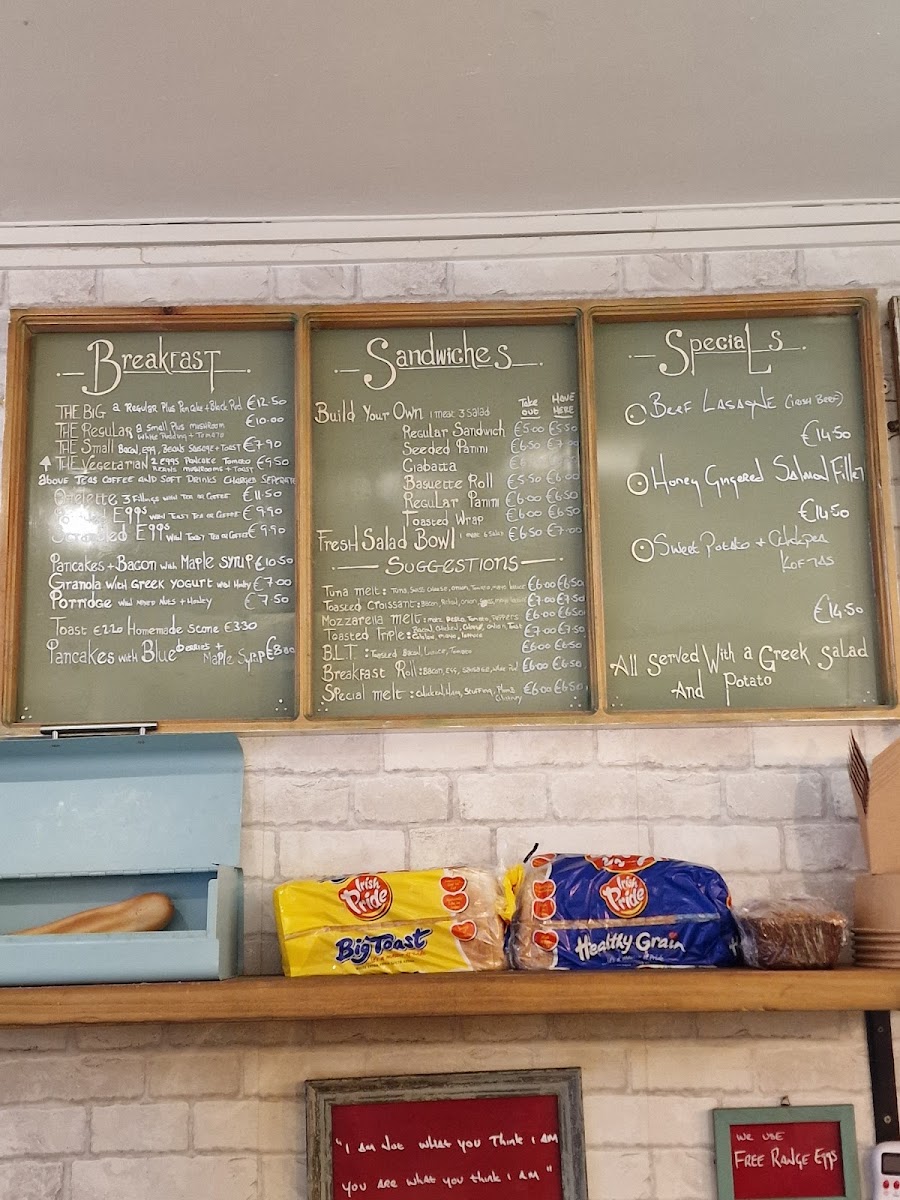 Breakfast
THE BIG a Regular Plus Pancake + Black Pud €12.50
THE Regular a Small Plus mushroom €10.00
White Pudding + Tomato
THE Small Bacon, Egg, Beans Sausage + Toast €7.90
THE Vegetarian 2 eggs Pancake Tomato €9.50
Beans mushrooms + Toast
above TEAS COFFEE AND SOFT DRINKS CHARGED SEPERATE
Omelette 3 Fillings with Tea or Coffee €11.50
Eggs with Toast Tea or Coffee €9.90
Scrambled Eggs with Toast Tea or Coffee €9.90
Pancakes + Bacon with Maple Syrup €10.50
Granola with Greek Yogurt with Honey €7.00
Porridge with mixed Nuts + Honey €7.50
Toast €2.20 Homemade Scone €3.30
Pancakes with Blueberries + Maple Syrup €8.00
Sandwiches
Build Your Own 1 meat 3 Salad Take out Have Here
Regular Sandwich €5.00 €5.50
Seeded Panini €6.50 €7.00
Ciabatta
Baguette Roll €5.50 €6.00
Regular Panini €6.00 €6.50
Toasted Wrap €6.00 €6.50
Fresh Salad Bowl 1 meat 6 Salad €6.50 €7.00
Suggestions
Tuna melt: Tuna, Swiss Cheese, onion, Tomato, €6.00 €6.50
Toasted Croissant: Bacon, onion, €7.00 €7.50
Mozzarella melt: mozz, Pesto, Tomato, Peppers €6.00 €6.50
Toasted Triple: Bacon, Chicken, Cheese, onion, Tom €7.00 €7.50
mayo, lettuce
B.L.T: Toasted Bacon, Lettuce, Tomato €6.00 €6.50
Breakfast Roll: Bacon, egg, sausage, white Pud €6.00 €6.50
Special melt: Chicken, Ham, Stuffing, €6.00 €6.50
Chutney
Specials
Beef Lasagne (Irish Beef)
€14.50
Honey Gingered Salmon Fillet
€14.50
Sweet Potato + Chickpea
Koftas
€14.50
All Served With a Greek Salad
And Potato
Irish Pride
Big Toast
Irish Pride
Healthy Grain
"I am not what you Think I am
you are what you think I am"
We use
Free Range Eggs